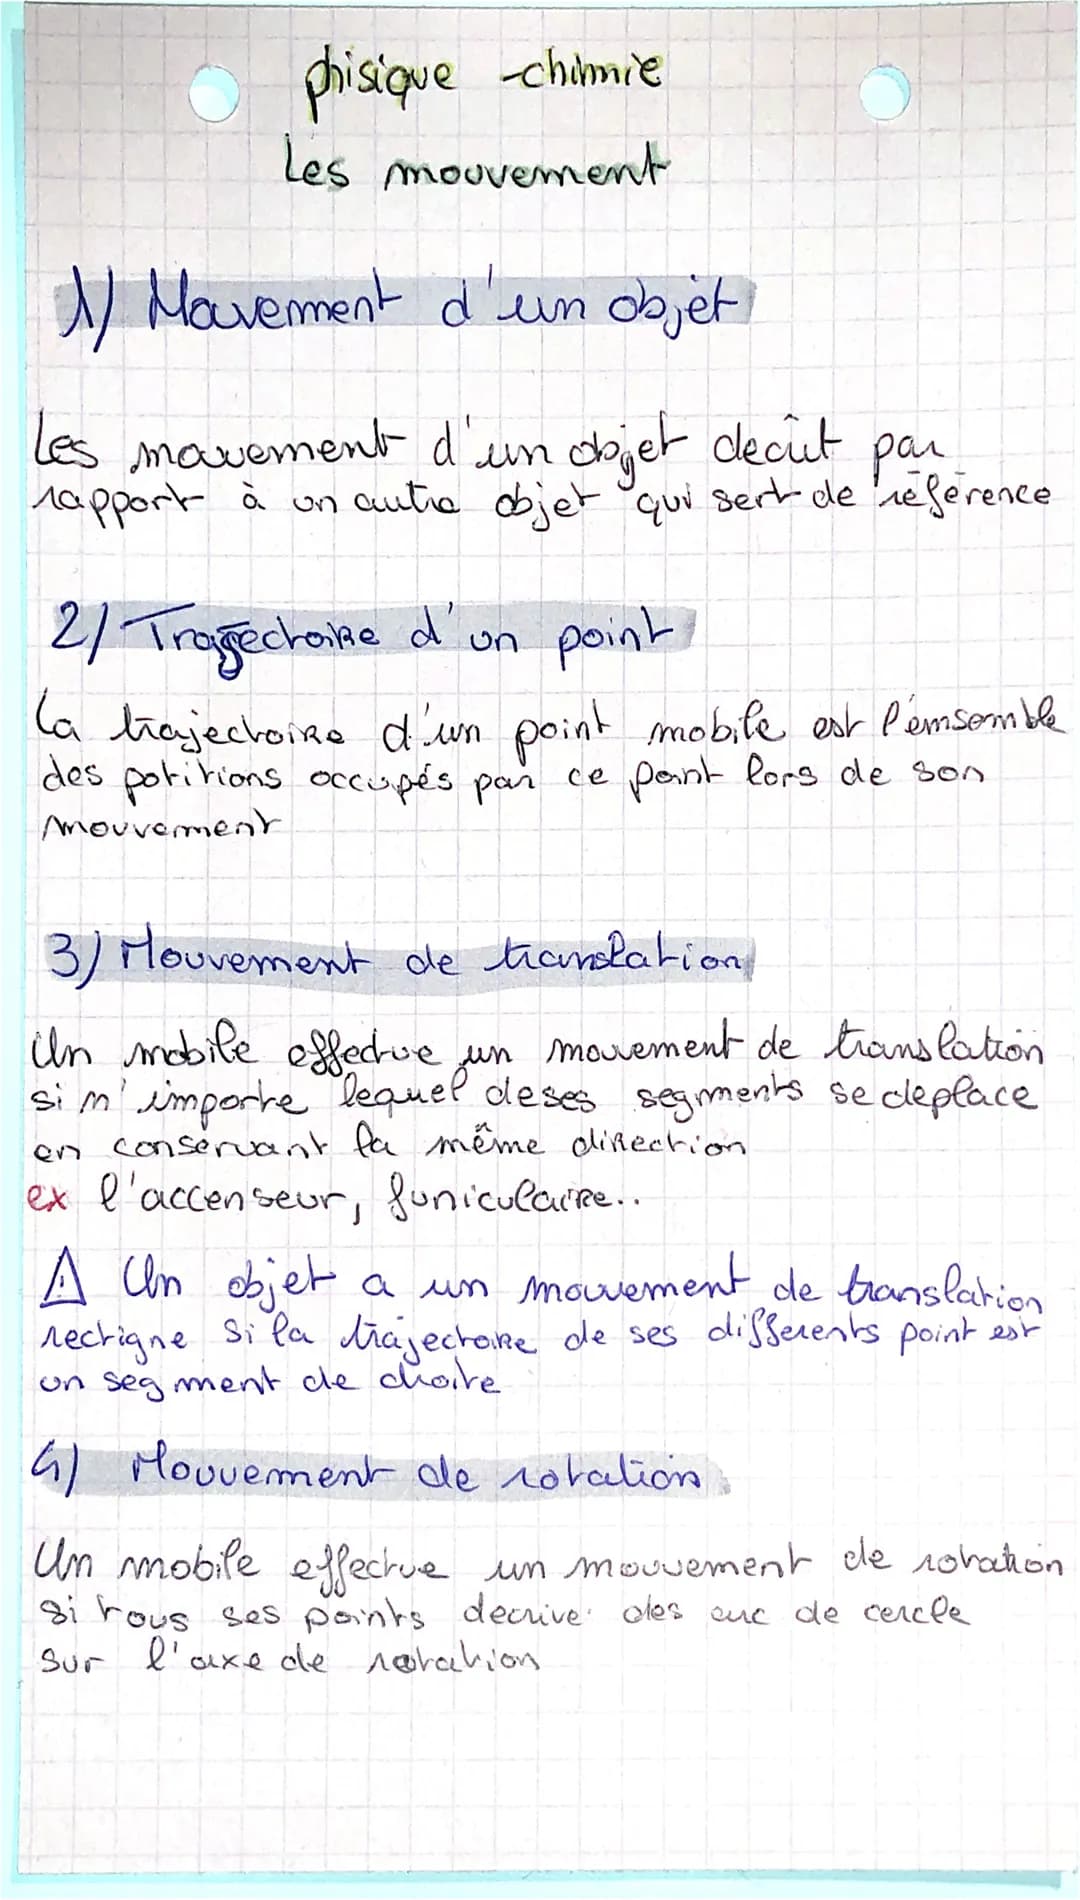 phisique -chimie
Les mouvement
1) Mouvement d'un objet
Les mouvement d'un objet decût par
rapport à un autre objet qui sert de référence
2) Trajectoire d'un point
La trajectoire d'un point mobile est l'emsemble
des potitions occupés par ce point lors de son
mouvement
3) Mouvement de translation
Un mobile effectue un mouvement de translation
si n'importe lequel de ses segments se deplace
en conservant la même direction
ex l'accenseur, funiculaire..
⚠ Un objet a un mouvement de translation
rectigne si la trajectoire de ses differents point est
un segment de droite
4) Mouvement de rotation
Un mobile effectue un mouvement de rotation
si tous ses points decrive des arc de cercle
sur l'axe de rotation